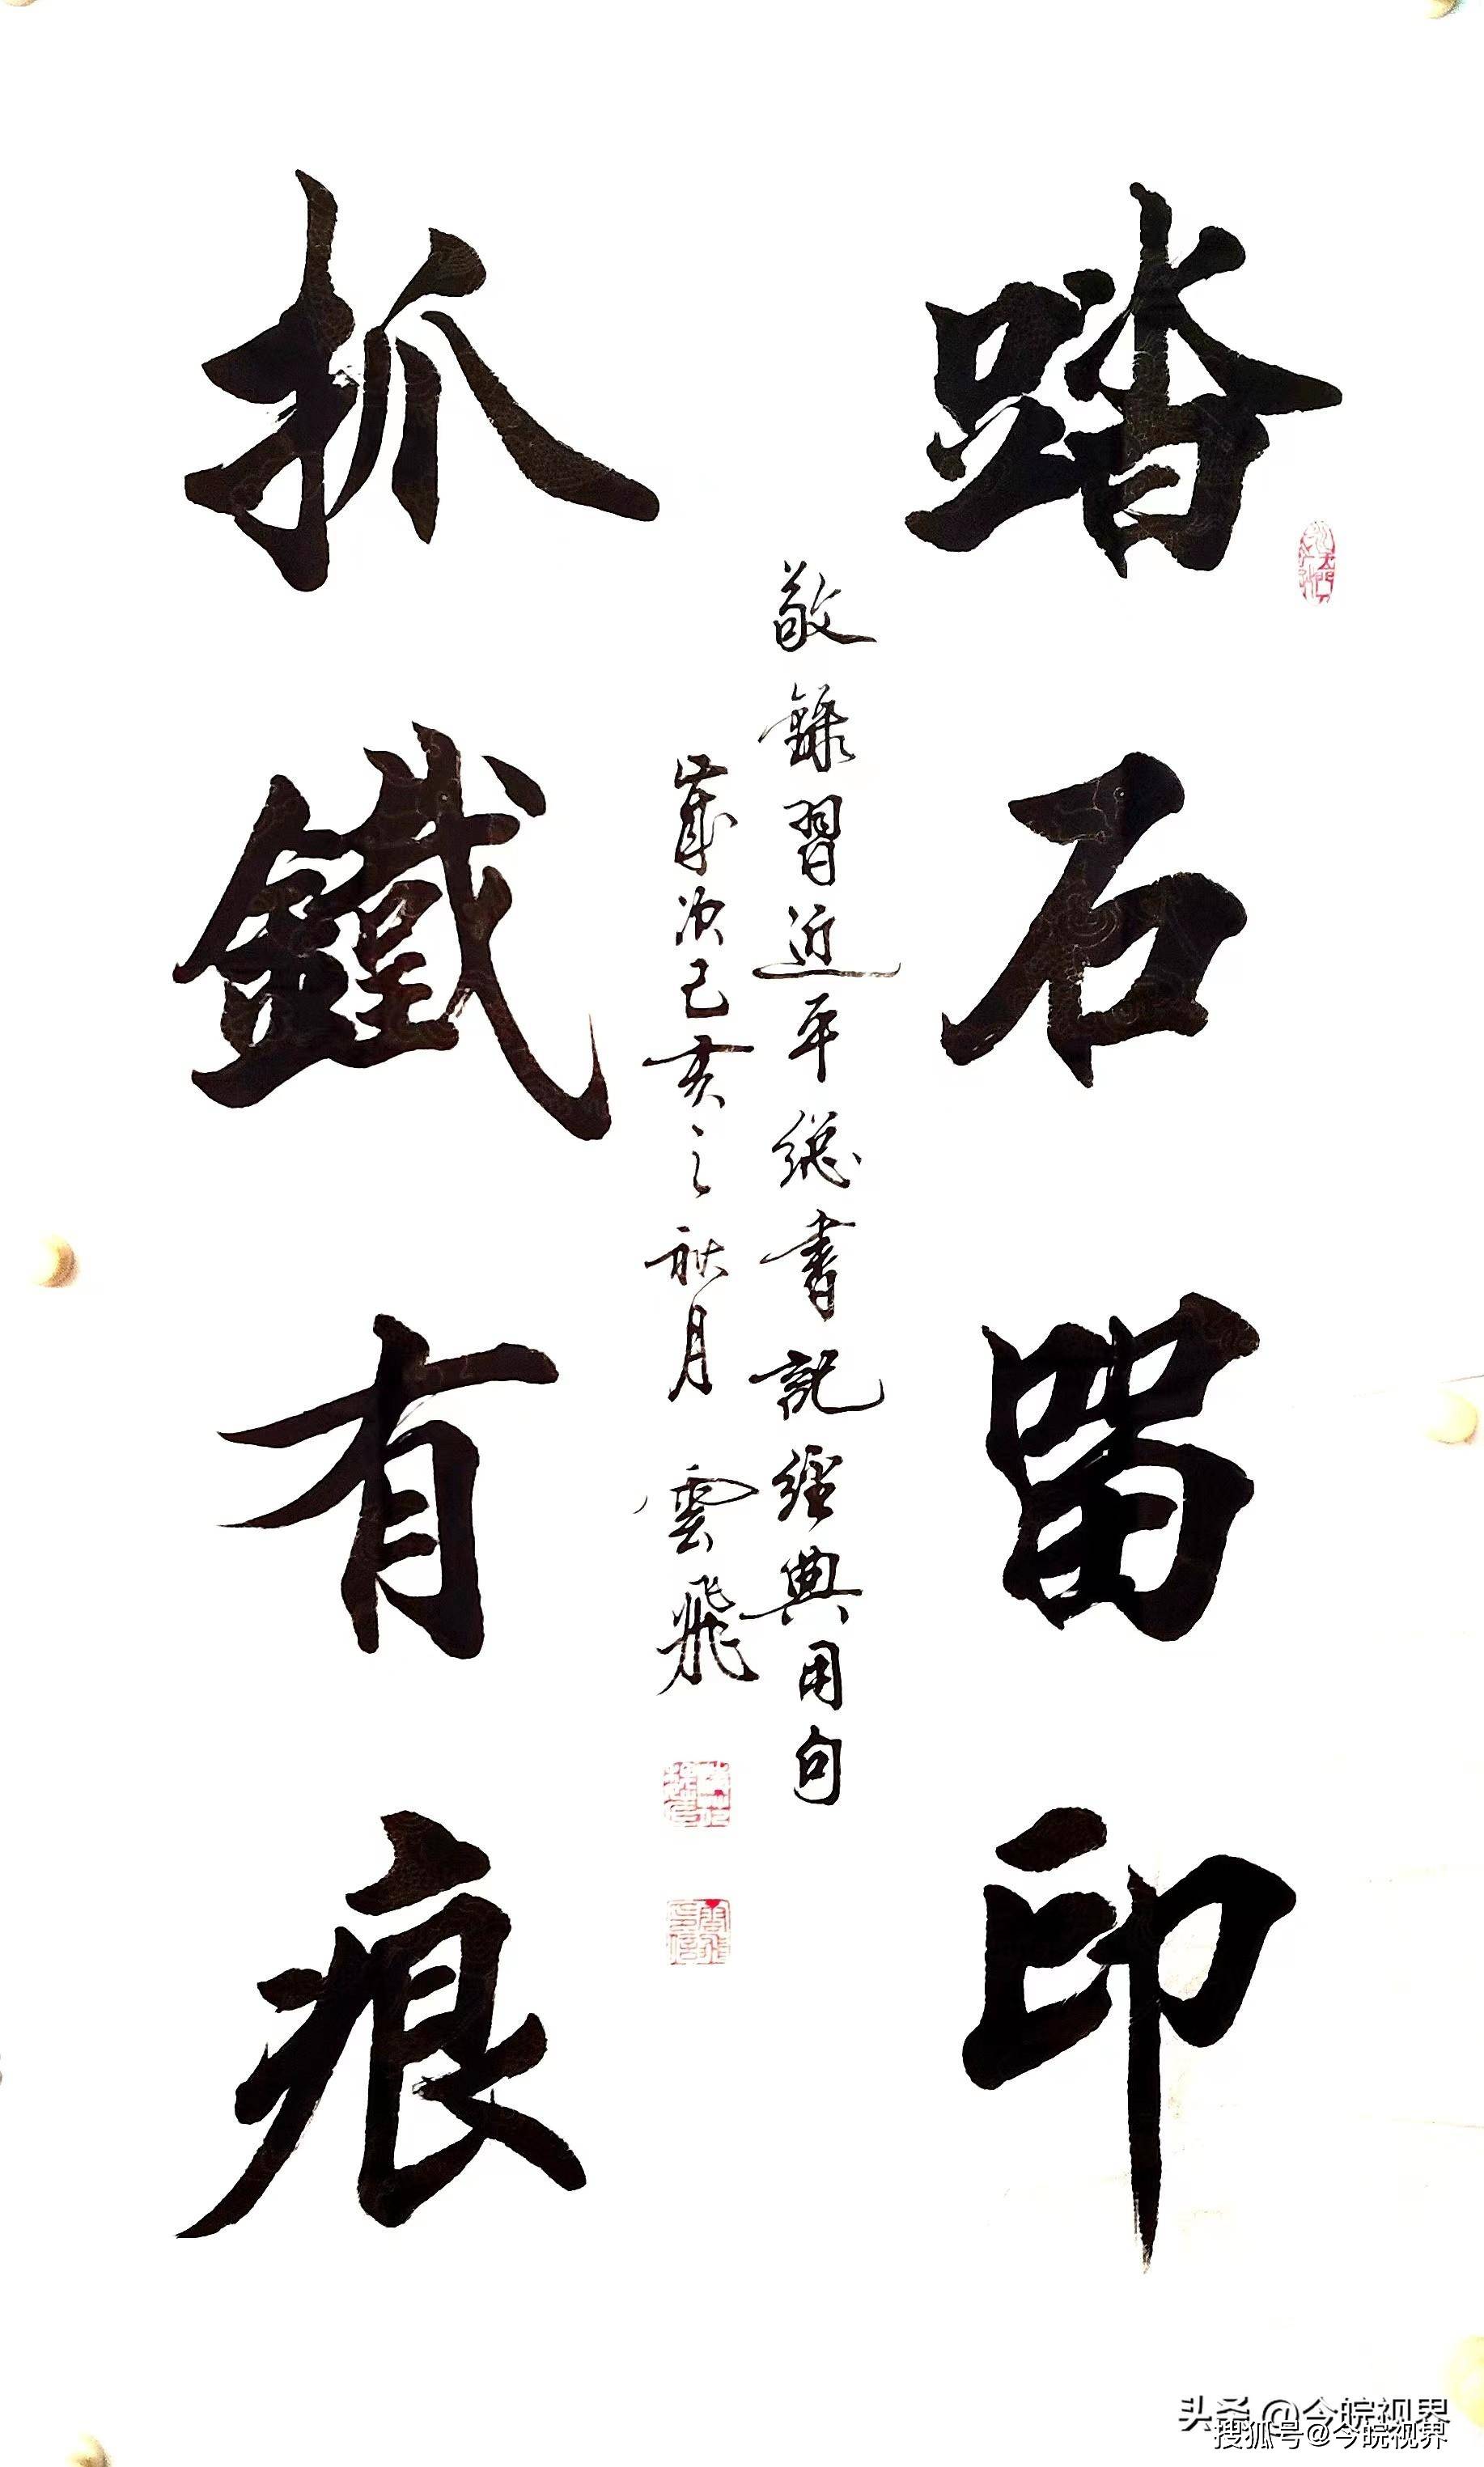 踏石留印
抓鐵有痕
敬錄習近平總書記經典用句
歲次己亥之秋月 雲飛
头条@今皖视界
搜狐号@今皖视界